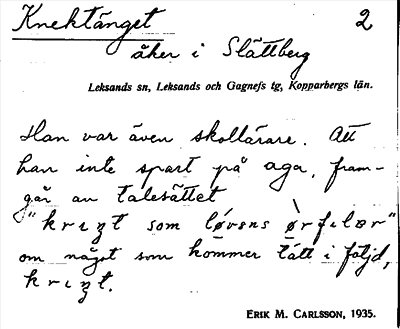 Knektänget 2
åker i Slättberg
Leksands sn, Leksands och Gagnefs tg, Kopparbergs län.
Han var även skollärare. Att
han inte spart på aga, fram-
går av talesättet
"krɩʒt som løvens òrfɩlær"
om något som kommer tätt i följd,
krɩʒt.
ERIK M. CARLSSON, 1935.